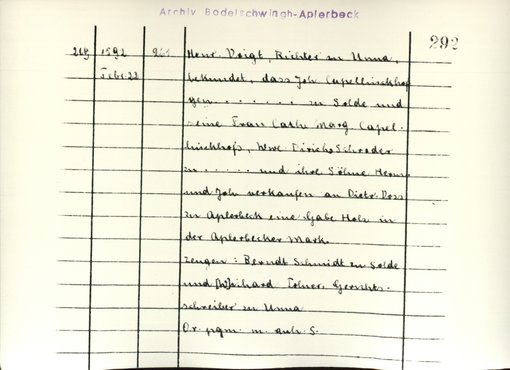 Archiv Bodelschwingh-Aplerbeck
292
219 1592 961 Henr. Voigt, Richter zu Unna,
Febr 22 bekundet, dass Joh Capellnisckhof
gen. . . . . . . zu Solde und
seine Frau Cath. Marg. Capel-
lnisckhofs, Wwe Dirichs Schroder
zu . . . . . und ihre Söhne Herm
und Joh verkaufen an Dietr. Voss
zu Aplerbeck eine Gabe Holz in
der Aplerbecker Mark.
Zeugen: Berndt Schmidt zu Solde
und Tolner, Gerichts-
schreiber zu Unna
Or. pgm. m. anh. S.